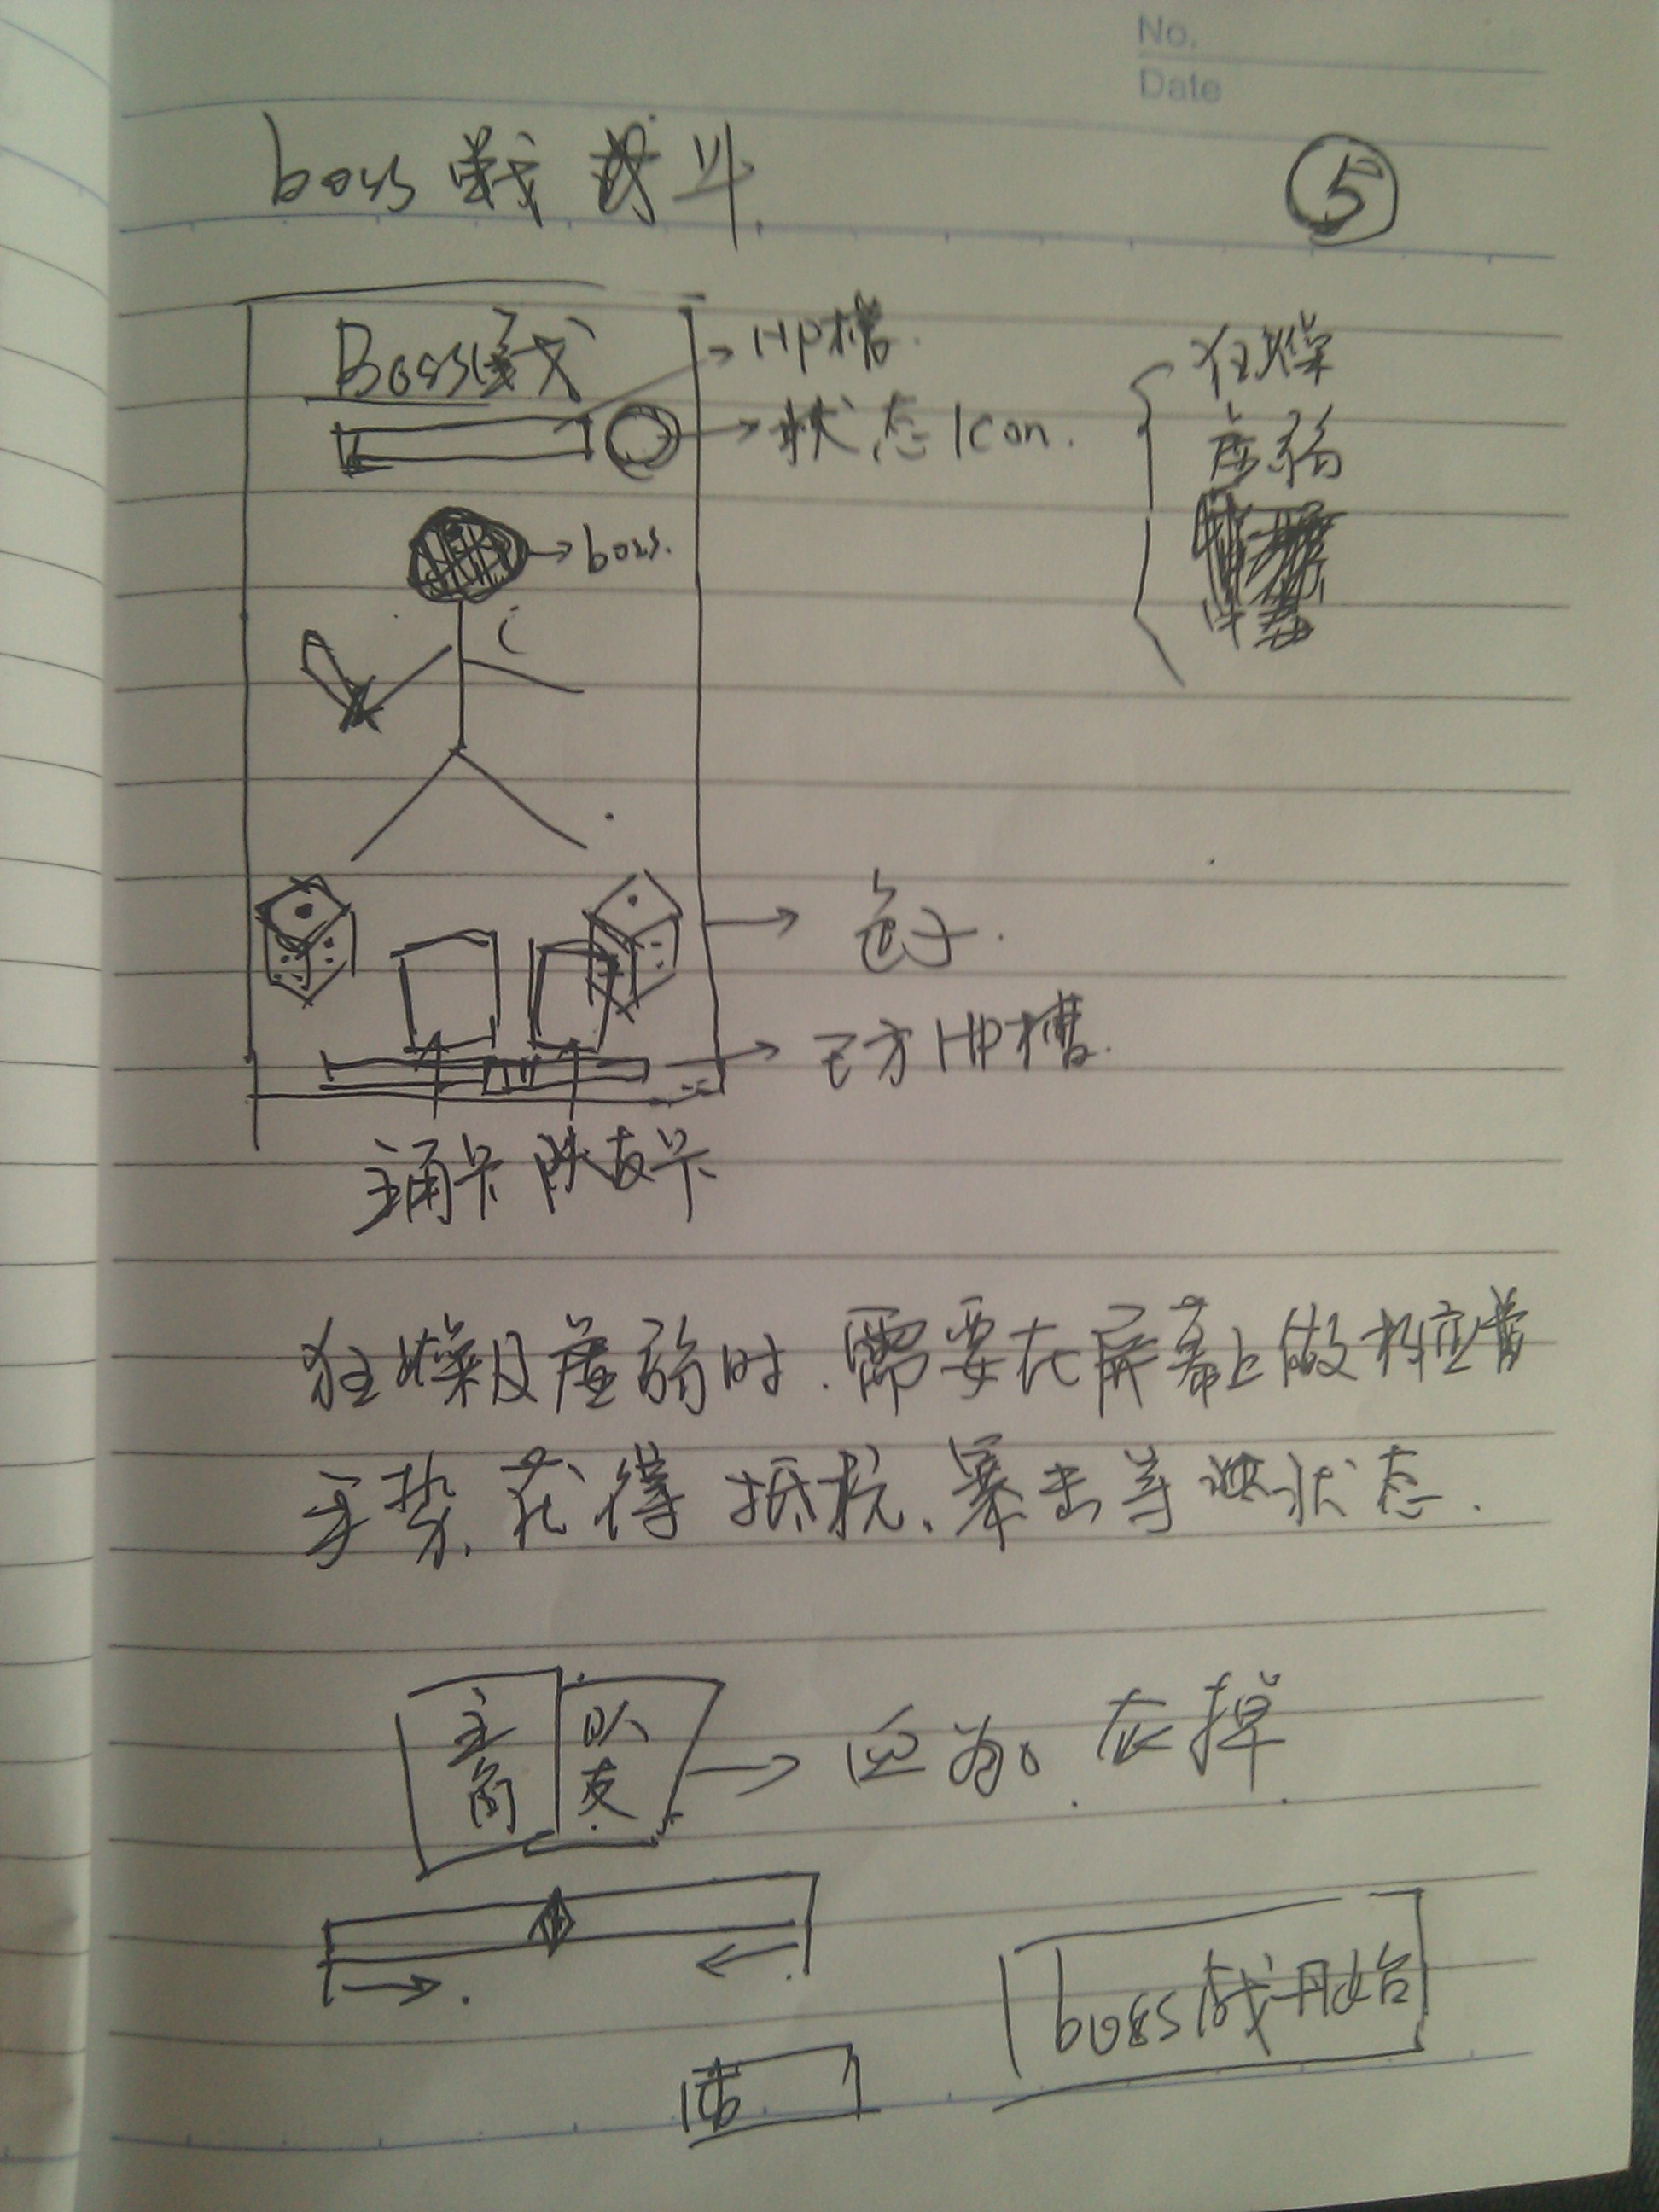 No.
Date
boss战 战斗
5
Boss战
HP槽
状态Icon.
狂燥
虚弱
boss.
色子.
己方HP槽.
主角卡 队友卡
狂燥及虚弱时.需要在屏幕上做相应的
手势.获得 抵抗、暴击等状态.
主角
队友
血为0. 灰掉
boss战开始